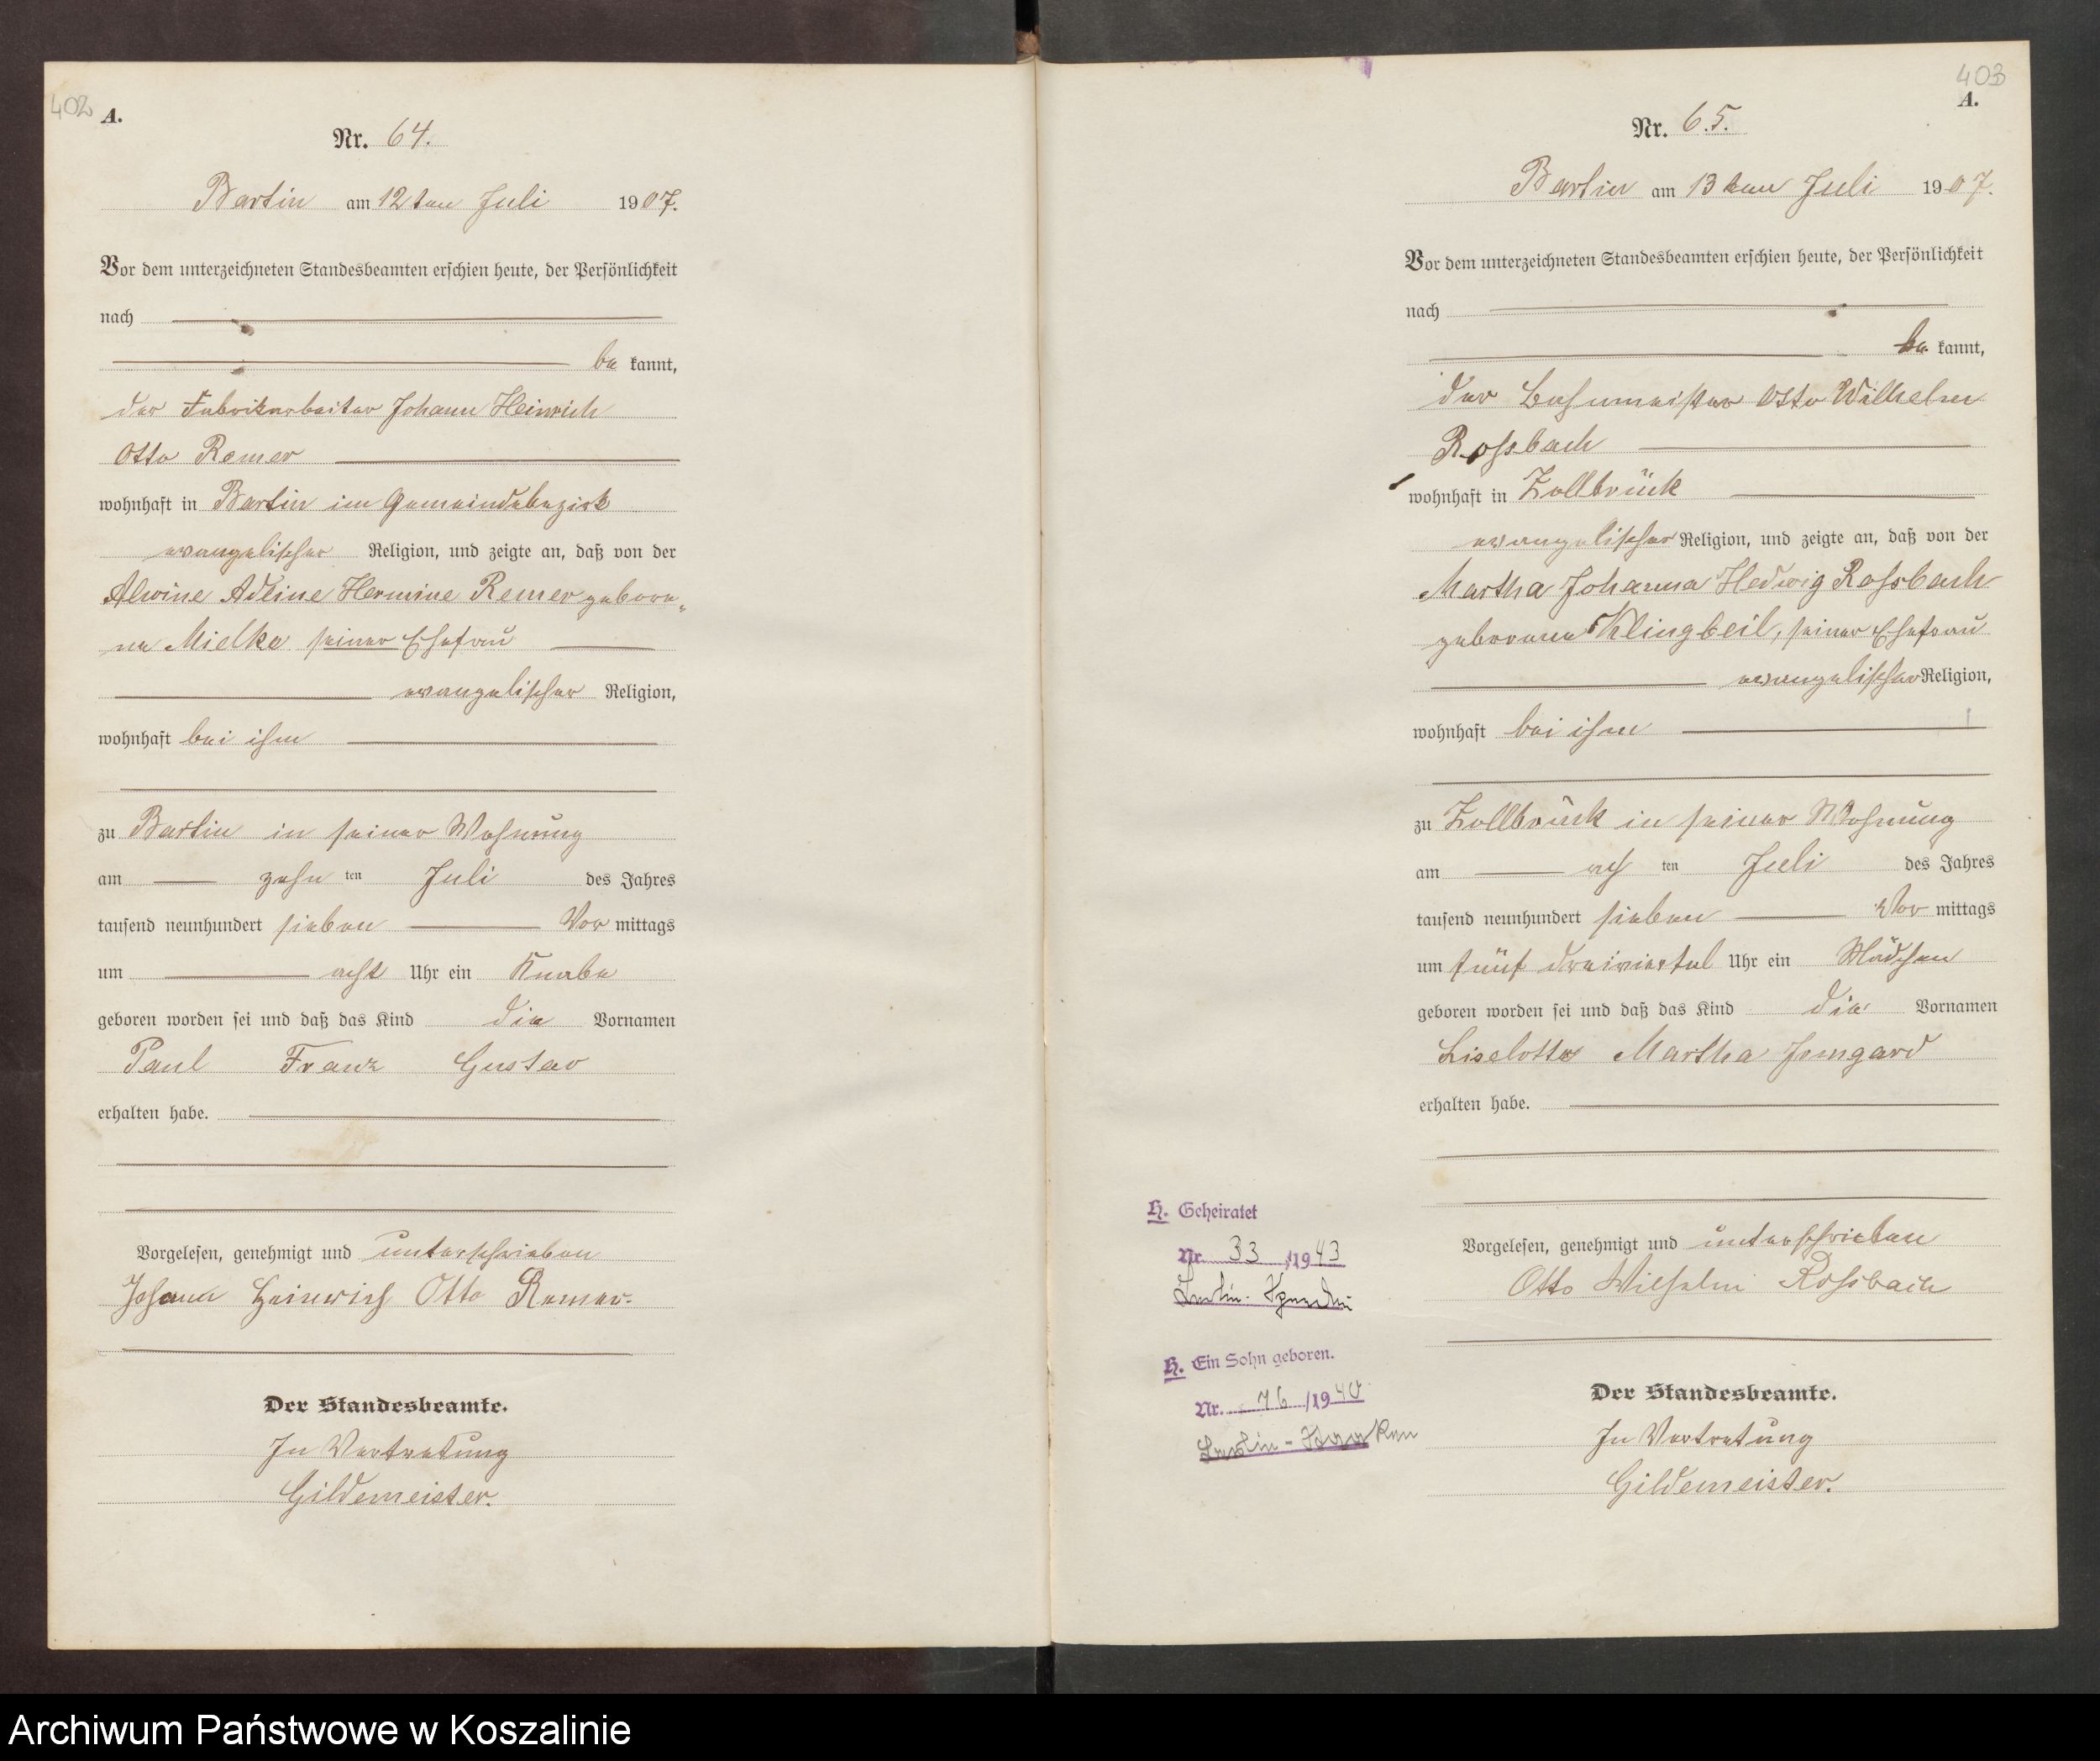 402
A.
Nr. 64.
Bartin am 12ten Juli 1907.
Vor dem unterzeichneten Standesbeamten erschien heute, der Persönlichkeit
nach
be kannt,
der Fabrikarbeiter Johann Heinrich
Otto Remer
wohnhaft in Bartin im Gemeindebezirk
evangelischer Religion, und zeigte an, daß von der
Alwine Adeine Hermine Remer gebore„
ne Mielke seiner Ehefrau
evangelischer Religion,
wohnhaft bei ihm
zu Bartin in seiner Wohnung
am zehn ten Juli des Jahres
tausend neunhundert sieben Vor mittags
um acht Uhr ein Knabe
geboren worden sei und daß das Kind die Vornamen
Paul Franz Gustav
erhalten habe.
Vorgelesen, genehmigt und unterschrieben
Johann Heinrich Otto Remer.
Der Standesbeamte.
In Vertretung
Gildemeister.
403
A.
Nr. 65.
Bartin am 13ten Juli 1907.
Vor dem unterzeichneten Standesbeamten erschien heute, der Persönlichkeit
nach
be kannt,
der Bahnmeister Otto Wilhelm
Rossbach
wohnhaft in Zollbrück
evangelischer Religion, und zeigte an, daß von der
Martha Johanna Hedwig Rossbach
geborene Klingbeil, seiner Ehefrau
evangelischer Religion,
wohnhaft bei ihm
zu Zollbrück in seiner Wohnung
am ach ten Juli des Jahres
tausend neunhundert sieben Vor mittags
um fünf dreiviertel Uhr ein Mädchen
geboren worden sei und daß das Kind die Vornamen
Liselotte Martha Irmgard
erhalten habe.
Vorgelesen, genehmigt und unterschrieben
Otto Wilhelm Rossbach
Der Standesbeamte.
In Vertretung
Gildemeister.
H. Geheiratet
Nr. 33 /1943
Berlin-Spandau
H. Ein Sohn geboren.
Nr. 76 /1940
Berlin-
Archiwum Państwowe w Koszalinie